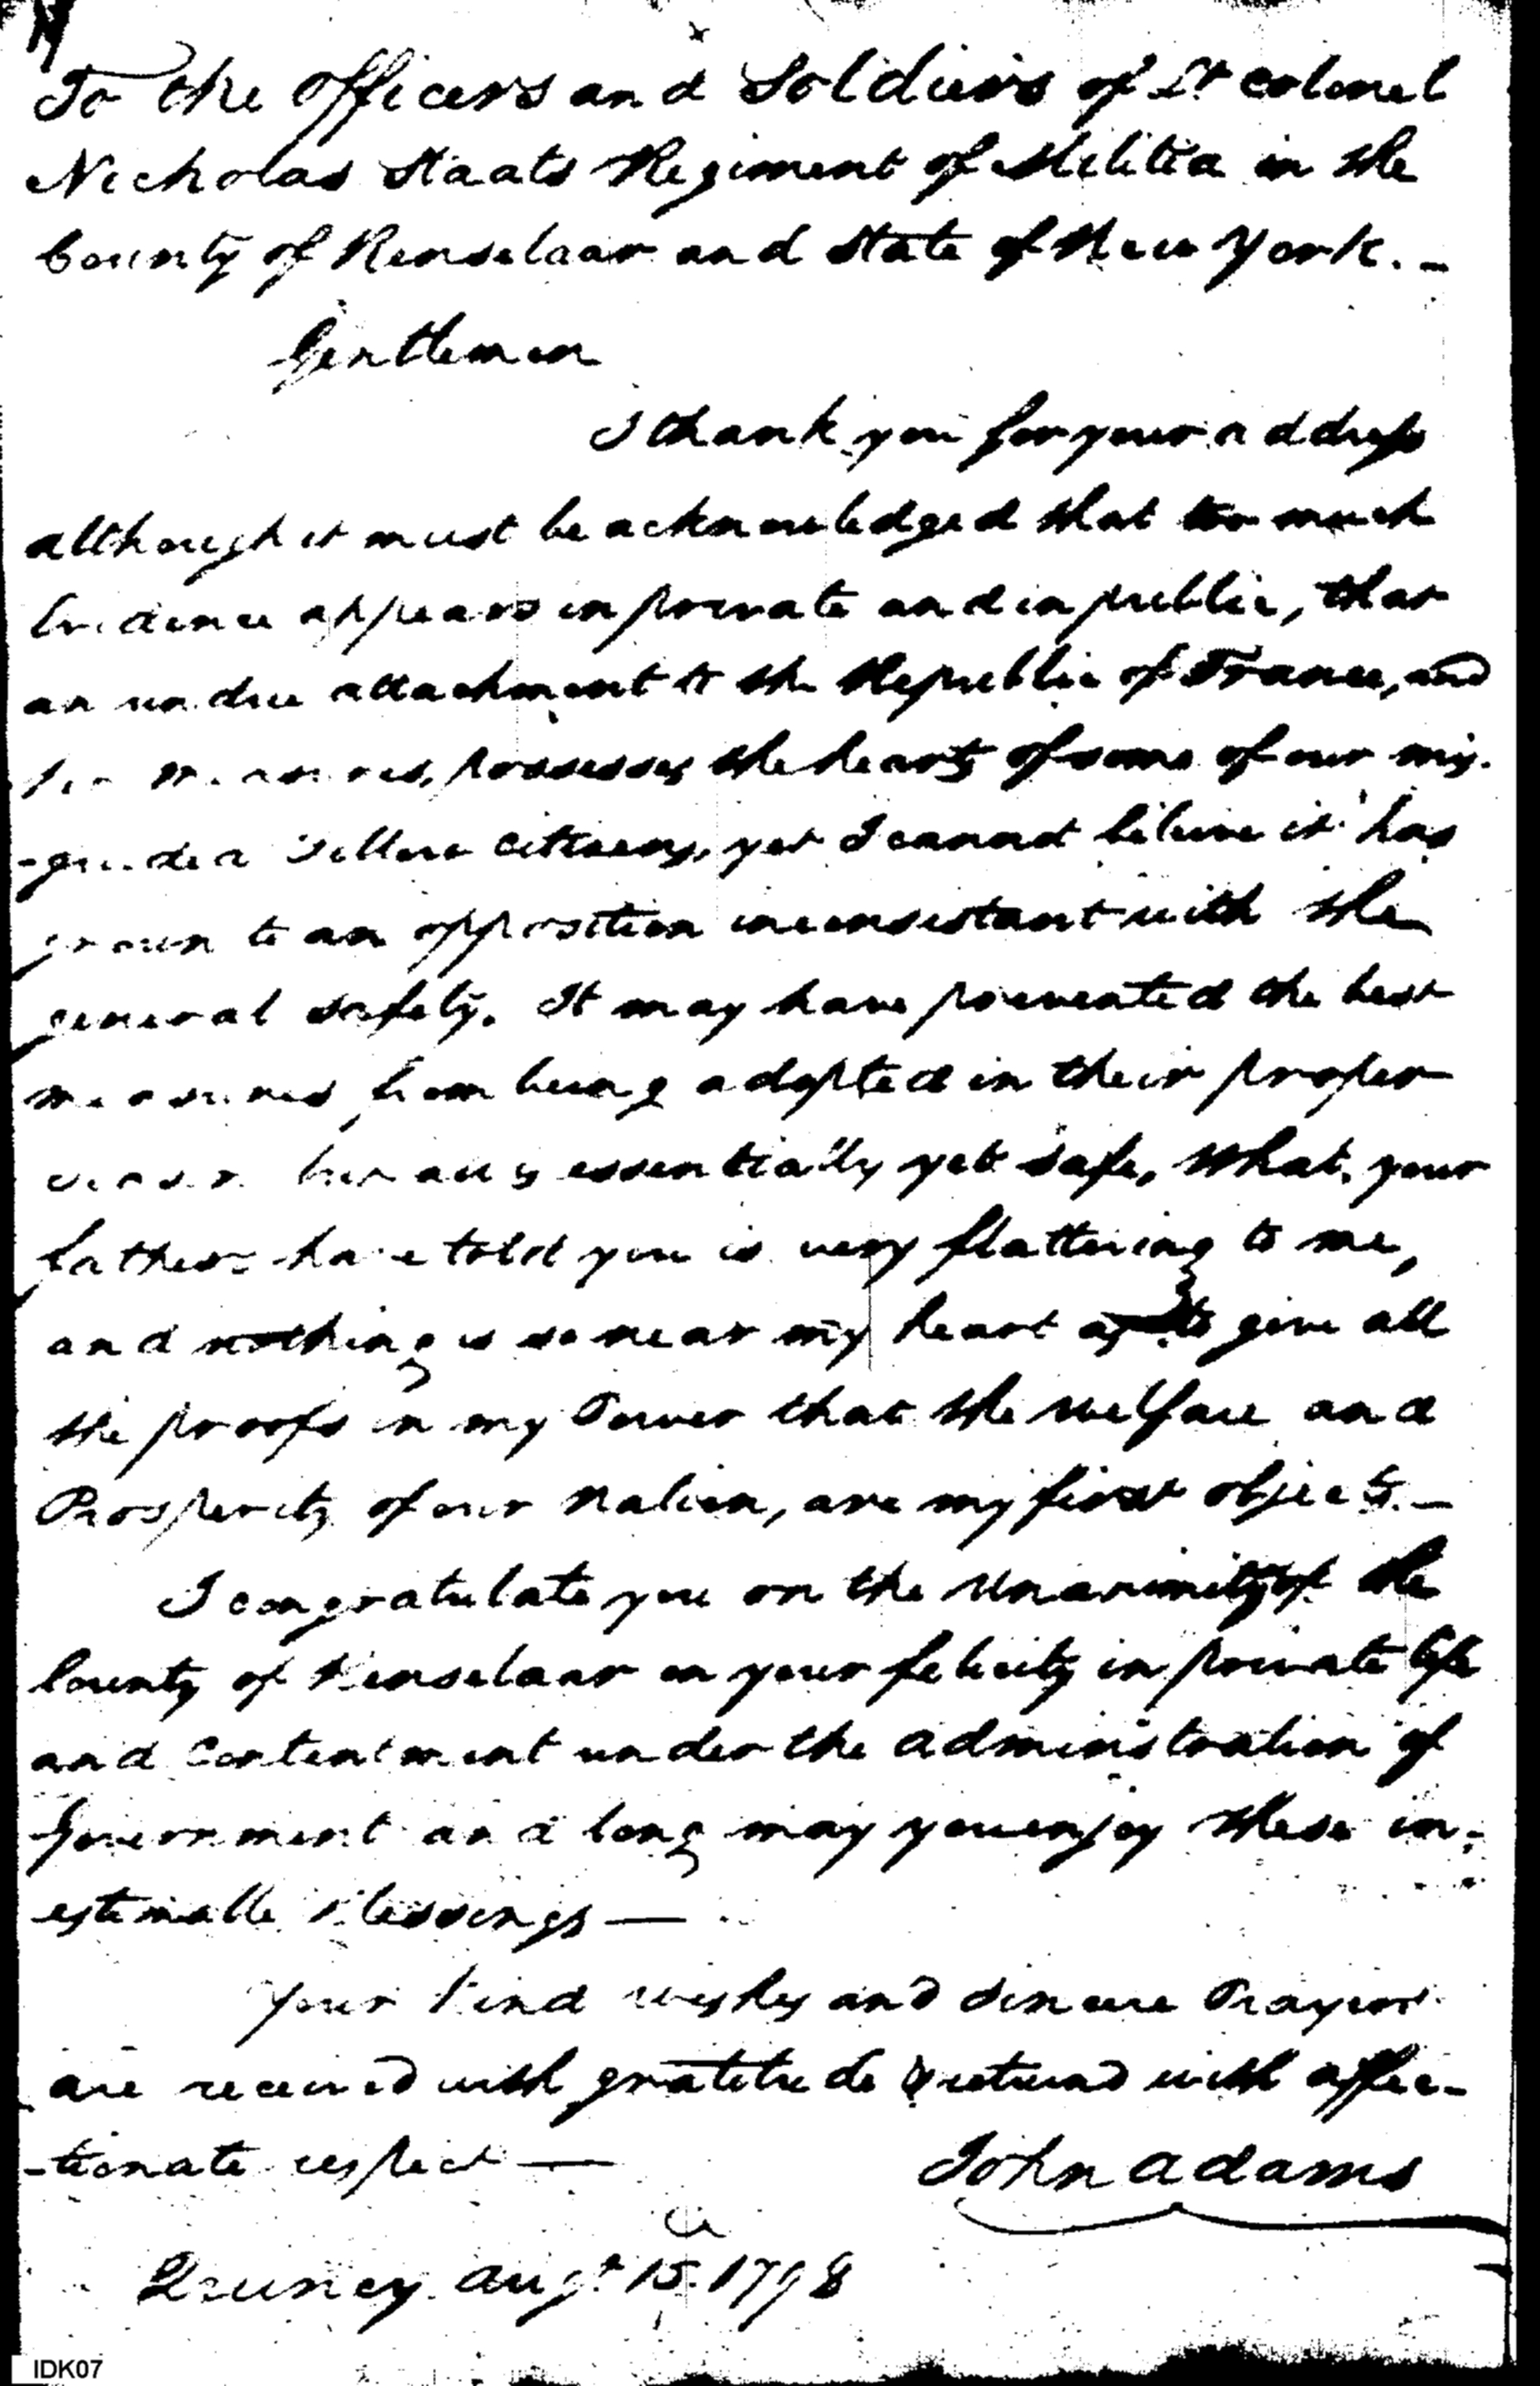 To the Officers and Soldiers of Lt Colonel
Nicholas Staats Regiment of Militia in the
County of Renselaar and State of New York. –
Gentlemen
I thank you for your address
although it must be acknowledged that too much
Evidence appears in private and in public, that
an undue attachment to the Republic of France, and
her measures, possesses the hearts of some of our mis-
-guided Fellow Citizens, yet I cannot believe it has
grown to an opposition inconsistant with the
general safety. It may have prevented the best
measures from being adopted in their proper
season but all is essentially yet safe, What your
fathers have told you is very flattering to me,
and nothing is so near my heart as to give all
the proofs in my Power that the Welfare and
Prosperity of our Nation, are my first objects. –
I congratulate you on the Unanimity of the
County of Renselaar on your felicity in private life
and Contentment under the administration of
Government and long may you enjoy these in-
estimable Blessings —
Your kind wishes and sincere Prayers
are received with gratitude & returned with affec-
-tionate respect —
John Adams
Quincy Augt 15. 1798
IDK07